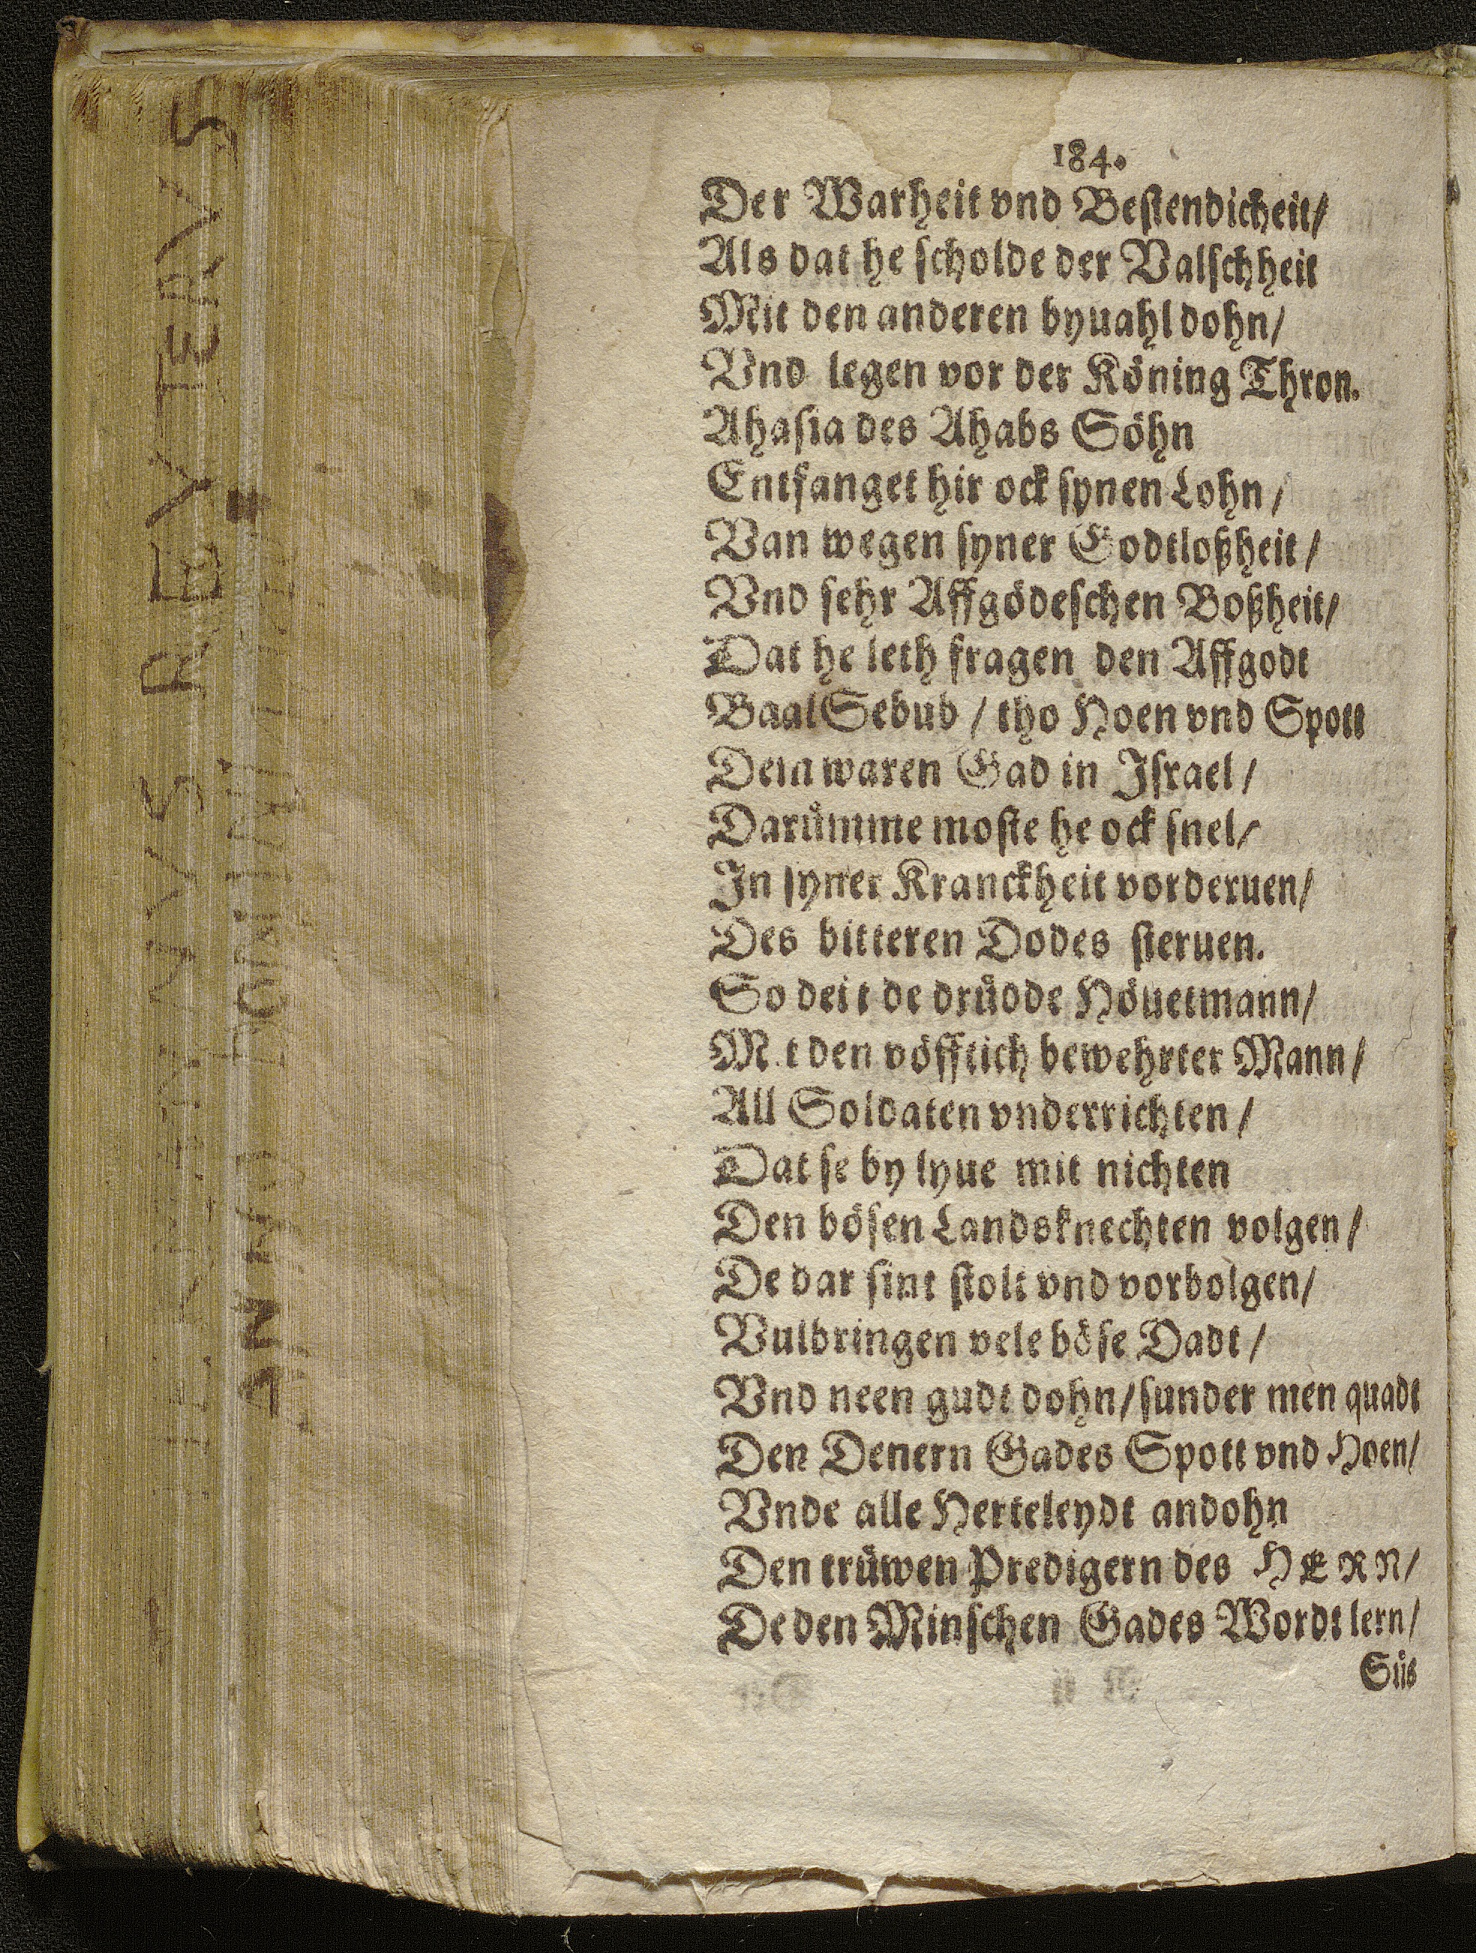 184.
Der Warheit vnd Bestendicheit/
Als dat he scholde der Valschheit
Mit den anderen byuahl dohn/
Vnd legen vor der Köning Thron.
Ahasia des Ahabs Söhn
Entfanget hir ock synen Lohn/
Van wegen syner Godtloßheit/
Vnd sehr Affgödeschen Boßheit/
Dat he leth fragen den Affgodt
Baal Sebub / tho Hoen vnd Spott
Dem waren Gad in Israel/
Darümme moste he ock snel/
In syner Kranckheit vorderuen/
Des bitteren Dodes steruen.
So deit de drüdde Höuetmann/
M.t den vöfftich bewehrter Mann/
All Soldaten vnderrichten/
Dat se by lyue mit nichten
Den bösen Landsknechten volgen/
De dar sint stolt vnd vorbolgen/
Vulbringen vele böse Dadt/
Vnd neen gudt dohn/sunder men quadt
Den Denern Gades Spott vnd Hoen/
Vnde alle Herteleydt andohn
Den trüwen Predigern des HERN/
De den Minschen Gades Wordt lern/
Süs
REVTERVS
ANNO DOMINI